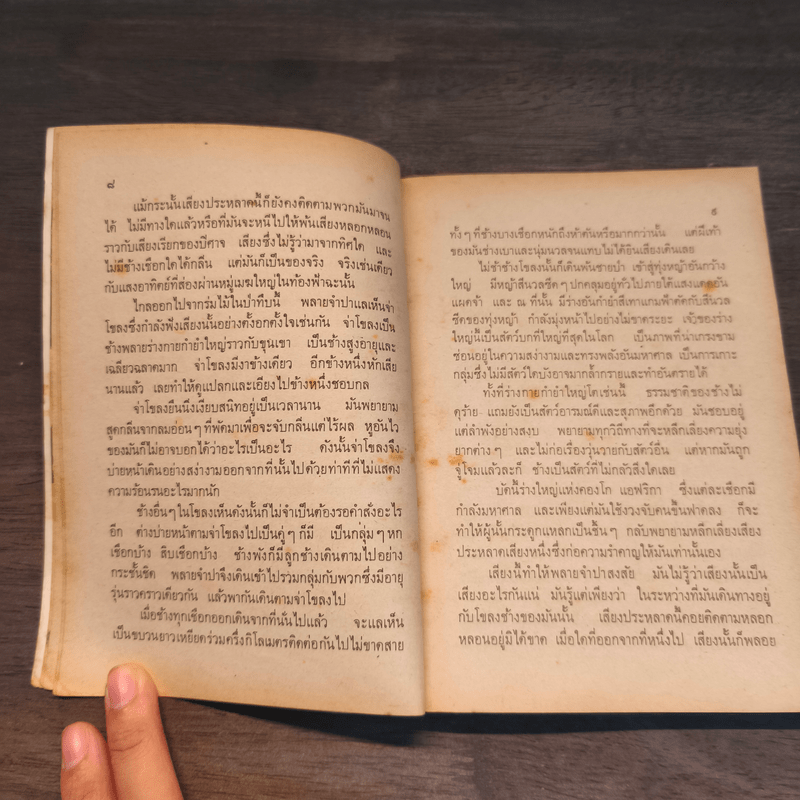 ๘
แม้กระนั้นเสียงประหลาดนี้ก็ยังคงติดตามพวกมันมาจน
ได้ ไม่มีทางใดแล้วหรือที่มันจะหนีไปให้พ้นเสียงหลอกหลอน
ราวกับเสียงเรียกของปีศาจ เสียงซึ่งไม่รู้ว่ามาจากทิศใด และ
ไม่มีช้างเชือกใดได้กลิ่น แต่มันก็เป็นของจริง จริงเช่นเดียว
กับแสงอาทิตย์ที่ส่องผ่านหมู่เมฆใหญ่ในท้องฟ้าฉะนั้น
ไกลออกไปจากร่มไม้ในป่าทึบนี้ พลายจำปาแลเห็นจ่า
โขลงซึ่งกำลังฟังเสียงนั้นอย่างตั้งอกตั้งใจเช่นกัน จ่าโขลงเป็น
ช้างพลายร่างกายกำยำใหญ่ราวกับขุนเขา เป็นช้างสูงอายุและ
เฉลียวฉลาดมาก จ่าโขลงมีงาข้างเดียว อีกข้างหนึ่งหักเสีย
นานแล้ว เลยทำให้ดูแปลกและเอียงไปข้างหนึ่งชอบกล
จ่าโขลงยืนนิ่งเงียบสนิทอยู่เป็นเวลานาน มันพยายาม
สูดกลิ่นจากลมอ่อนๆ ที่พัดมาเพื่อจะจับกลิ่นแต่ไร้ผล หูอันไว
ของมันก็ไม่อาจบอกได้ว่าอะไรเป็นอะไร ดังนั้นจ่าโขลงจึง
บ่ายหน้าเดินอย่างสง่างามออกจากที่นั้นไปด้วยท่าทีที่ไม่แสดง
ความร้อนรนอะไรมากนัก
ช้างอื่นๆ ในโขลงเห็นดังนั้นก็ไม่จำเป็นต้องรอคำสั่งอะไร
อีก ต่างบ่ายหน้าตามจ่าโขลงไปเป็นคู่ๆ ก็มี เป็นกลุ่มๆ หก
เชือกบ้าง สิบเชือกบ้าง ช้างพังก็มีลูกช้างเดินตามไปอย่าง
กระชั้นชิด พลายจำปาจึงเดินเข้าไปรวมกลุ่มกับพวกซึ่งมีอายุ
รุ่นราวคราวเดียวกัน แล้วพากันเดินตามจ่าโขลงไป
เมื่อช้างทุกเชือกออกเดินจากที่นั่นไปแล้ว จะแลเห็น
เป็นขบวนยาวเหยียดร่วมครึ่งกิโลเมตรติดต่อกันไปไม่ขาดสาย
๙
ทั้งๆ ที่ช้างบางเชือกหนักถึงห้าตันหรือมากกว่านั้น แต่ฝีเท้า
ของมันช่างเบาและนุ่มนวลจนแทบไม่ได้ยินเสียงเดินเลย
ไม่ช้าช้างโขลงนั้นก็เดินพ้นชายป่า เข้าสู่ทุ่งหญ้าอันกว้าง
ใหญ่ มีหญ้าสีนวลซีดๆ ปกคลุมอยู่ทั่วไปภายใต้แสงแดดอัน
แผดจ้า และ ณ ที่นั้น มีร่างอันกำยำสีเทาแกมฟ้าตัดกับสีนวล
ซีดของทุ่งหญ้า กำลังมุ่งหน้าไปอย่างไม่ขาดระยะ เจ้าของร่าง
ใหญ่นี้เป็นสัตว์บกที่ใหญ่ที่สุดในโลก เป็นภาพที่น่าเกรงขาม
ซ่อนอยู่ในความสง่างามและทรงพลังอันมหาศาล เป็นการเกาะ
กลุ่มซึ่งไม่มีสัตว์ใดบังอาจมากล้ำกรายและทำอันตรายได้
ทั้งที่ร่างกายกำยำใหญ่โตเช่นนี้ ธรรมชาติของช้างไม่
ดุร้าย แถมยังเป็นสัตว์อารมณ์ดีและสุภาพอีกด้วย มันชอบอยู่
แต่ลำพังอย่างสงบ พยายามทุกวิถีทางที่จะหลีกเลี่ยงความยุ่ง
ยากต่างๆ และไม่ก่อเรื่องวุ่นวายกับสัตว์อื่น แต่หากมันถูก
จู่โจมแล้วละก็ ช้างเป็นสัตว์ที่ไม่กลัวสิ่งใดเลย
บัดนี้ร่างใหญ่แห่งคองโก แอฟริกา ซึ่งแต่ละเชือกมี
กำลังมหาศาล และเพียงแต่มันใช้งวงจับคนขึ้นฟาดลง ก็จะ
ทำให้ผู้นั้นกระดูกแหลกเป็นชิ้นๆ กลับพยายามหลีกเลี่ยงเสียง
ประหลาดเสียงหนึ่งซึ่งก่อความรำคาญให้มันเท่านั้นเอง
เสียงนี้ทำให้พลายจำปาสงสัย มันไม่รู้ว่าเสียงนั้นเป็น
เสียงอะไรกันแน่ มันรู้แต่เพียงว่า ในระหว่างที่มันเดินทางอยู่
กับโขลงช้างของมันนั้น เสียงประหลาดนี้คอยติดตามหลอก
หลอนอยู่มิได้ขาด เมื่อใดที่ออกจากที่หนึ่งไป เสียงนั้นก็พลอย